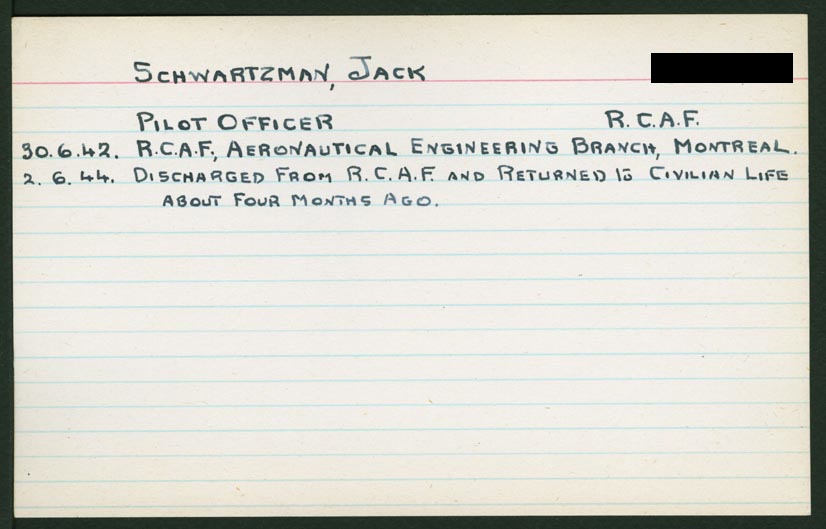 SCHWARTZMAN, JACK
PILOT OFFICER R.C.A.F.
30.6.42. R.C.A.F., AERONAUTICAL ENGINEERING BRANCH, MONTREAL.
2.6.44. DISCHARGED FROM R.C.A.F. AND RETURNED TO CIVILIAN LIFE
ABOUT FOUR MONTHS AGO.